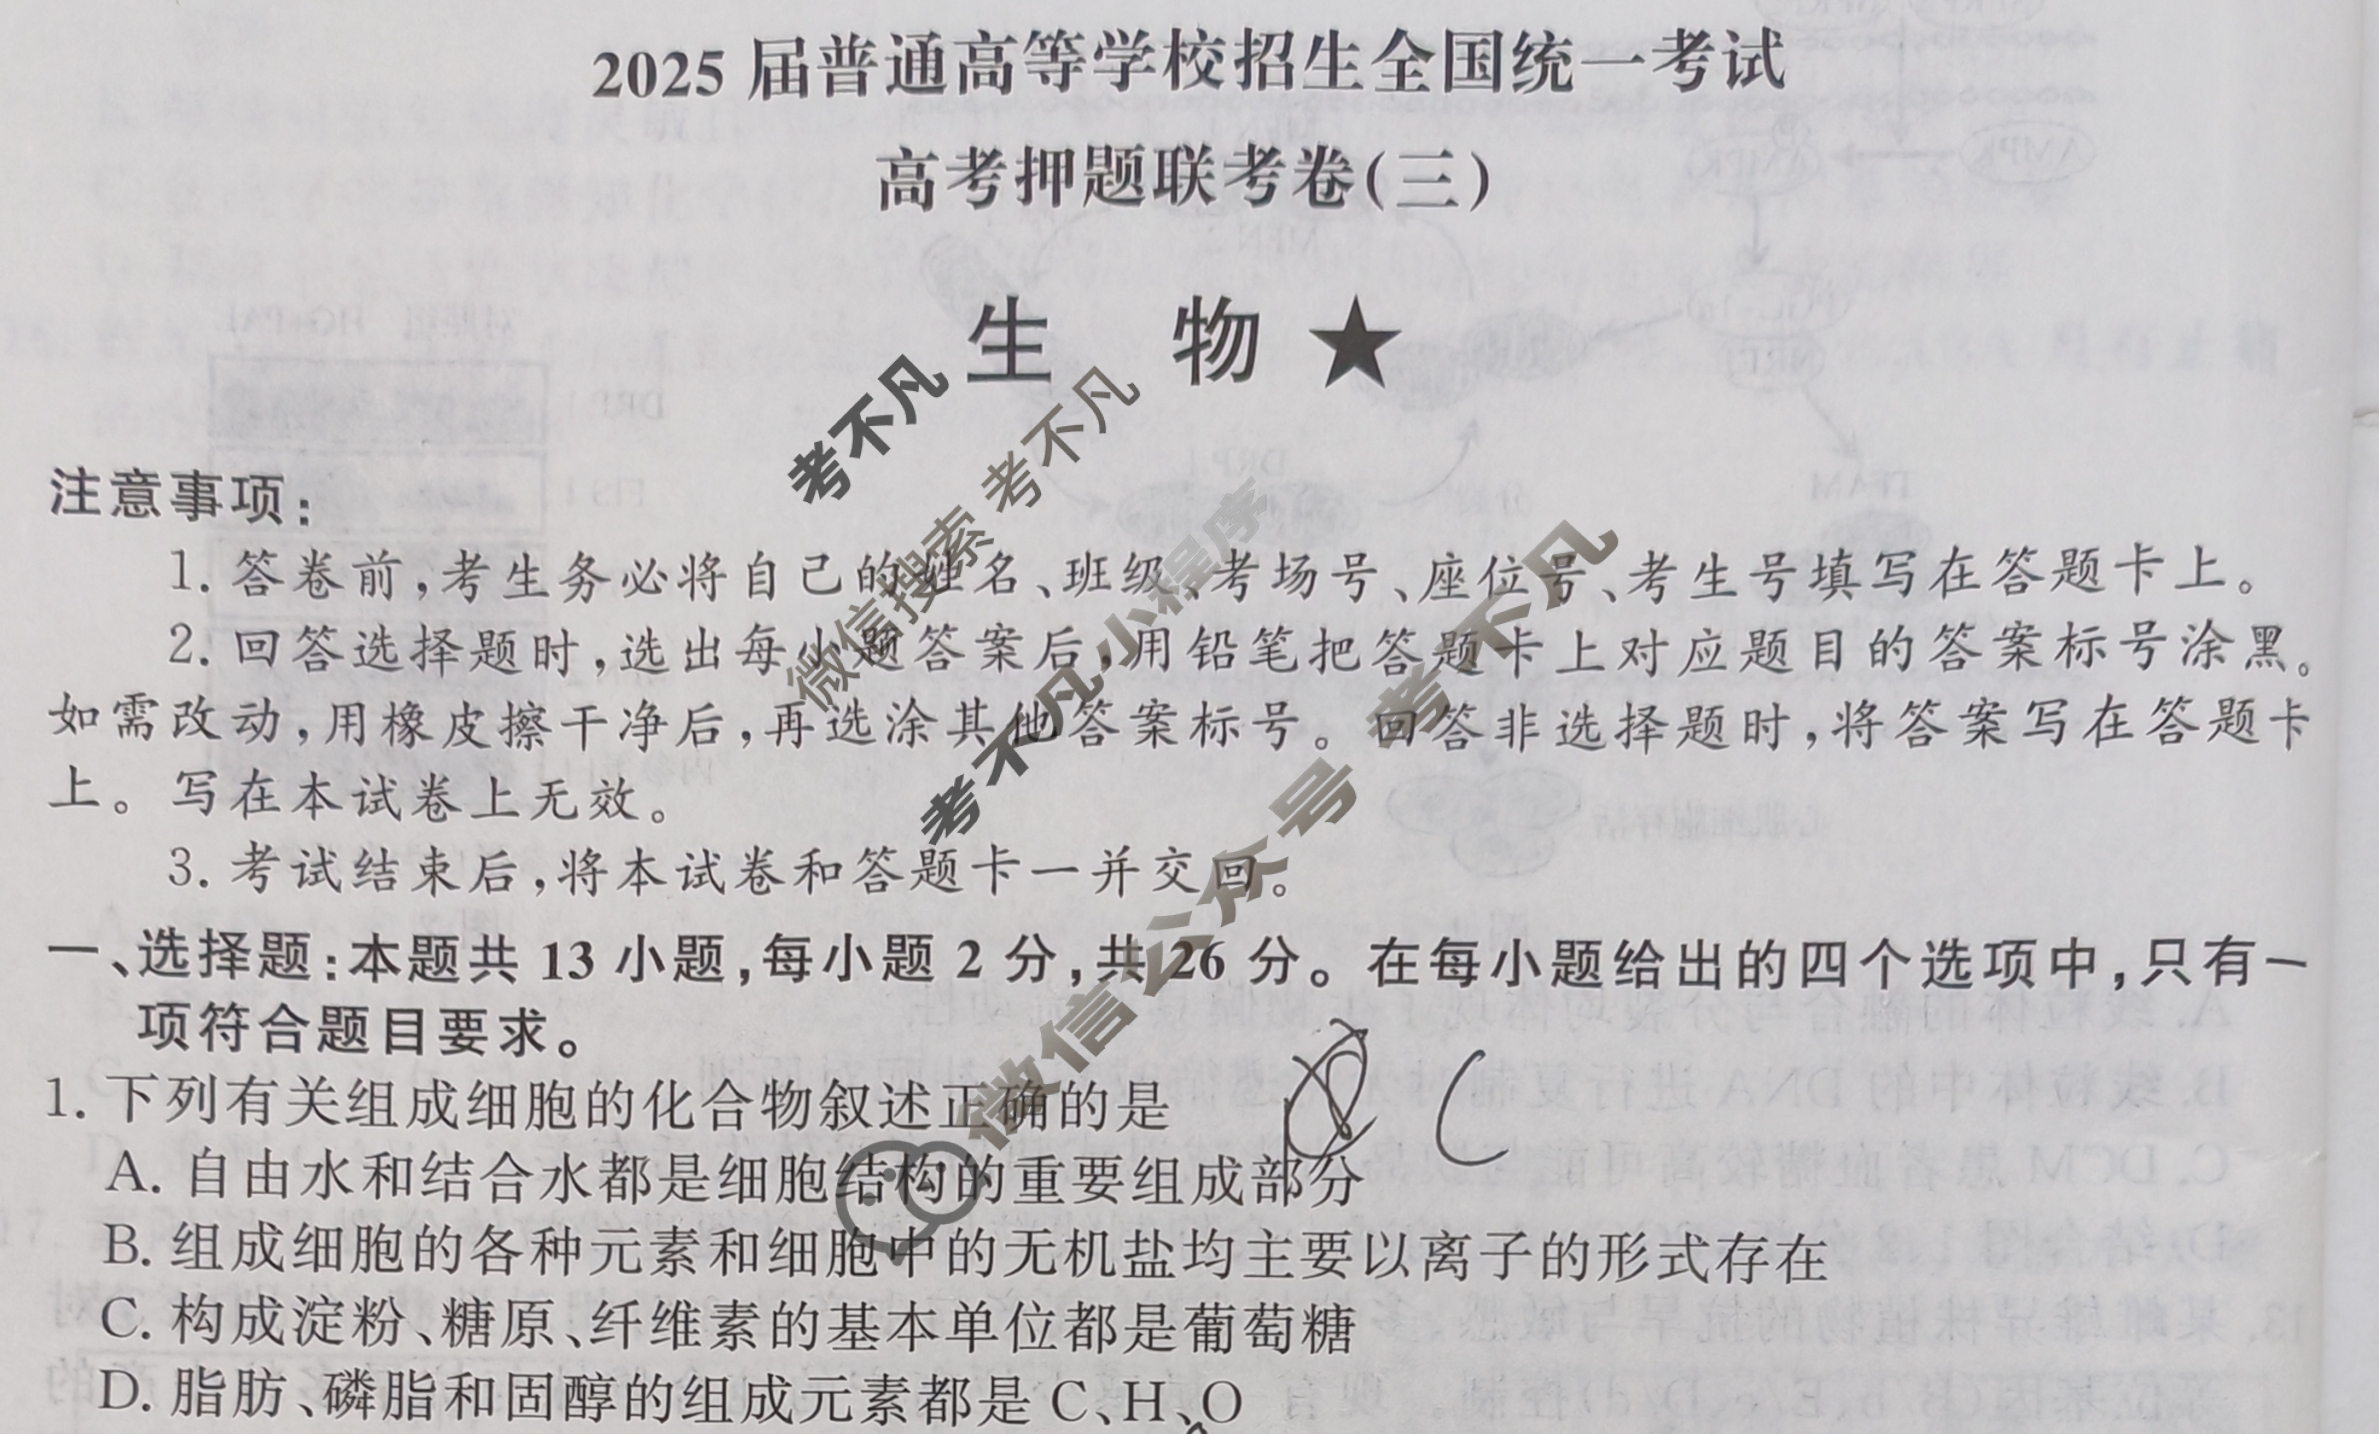 2025 届普通高等学校招生全国统一考试
高考押题联考卷(三)
生 物 ★
注意事项:
1. 答卷前,考生务必将自己的姓名、班级、考场号、座位号、考生号填写在答题卡上。
2. 回答选择题时,选出每小题答案后,用铅笔把答题卡上对应题目的答案标号涂黑。
如需改动,用橡皮擦干净后,再选涂其他答案标号。回答非选择题时,将答案写在答题卡
上。写在本试卷上无效。
3. 考试结束后,将本试卷和答题卡一并交回。
一、选择题:本题共 13 小题,每小题 2 分,共 26 分。在每小题给出的四个选项中,只有一
项符合题目要求。
1. 下列有关组成细胞的化合物叙述正确的是
C
A. 自由水和结合水都是细胞结构的重要组成部分
B. 组成细胞的各种元素和细胞中的无机盐均主要以离子的形式存在
C. 构成淀粉、糖原、纤维素的基本单位都是葡萄糖
D. 脂肪、磷脂和固醇的组成元素都是 C、H、O
考不凡
微信搜索 考不凡
考不凡小程序
微信公众号 考不凡